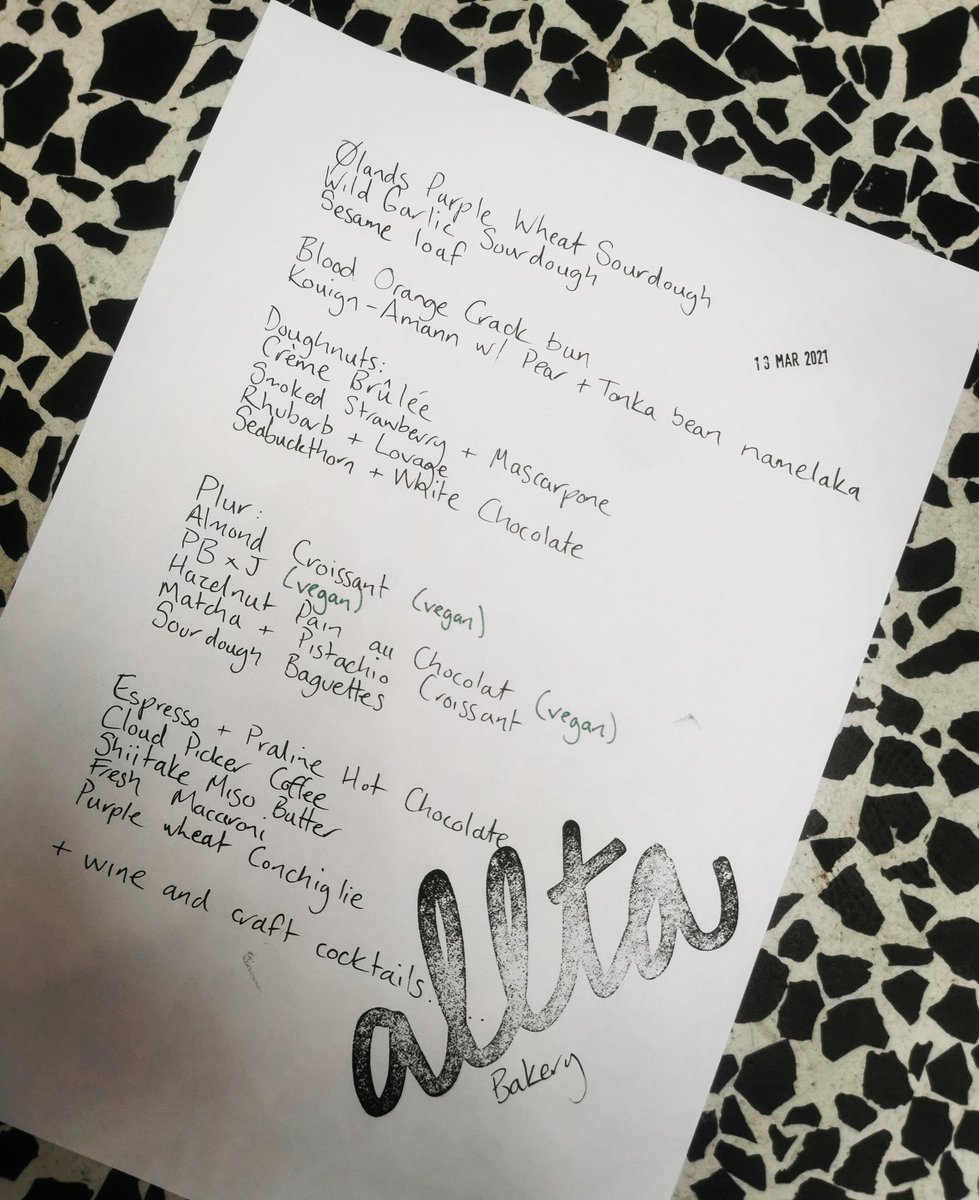 Ølands Purple Wheat Sourdough
Wild Garlic Sourdough
Sesame loaf
Blood Orange Crack bun
Kouign-Amann w/ Pear + Tonka bean namelaka
13 MAR 2021
Doughnuts:
Crème Brûlée
Smoked Strawberry + Mascarpone
Rhubarb + Lovage
Seabuckthorn + White Chocolate
Plur:
Almond Croissant (vegan)
PB x J (vegan)
Hazelnut Pain au Chocolat (vegan)
Matcha + Pistachio Croissant
Sourdough Baguettes
Espresso + Praline Hot Chocolate
Cloud Picker Coffee
Shiitake Miso Butter
Fresh Maccaroni
Purple wheat Conchiglie
+ wine and craft cocktails.
allta
Bakery